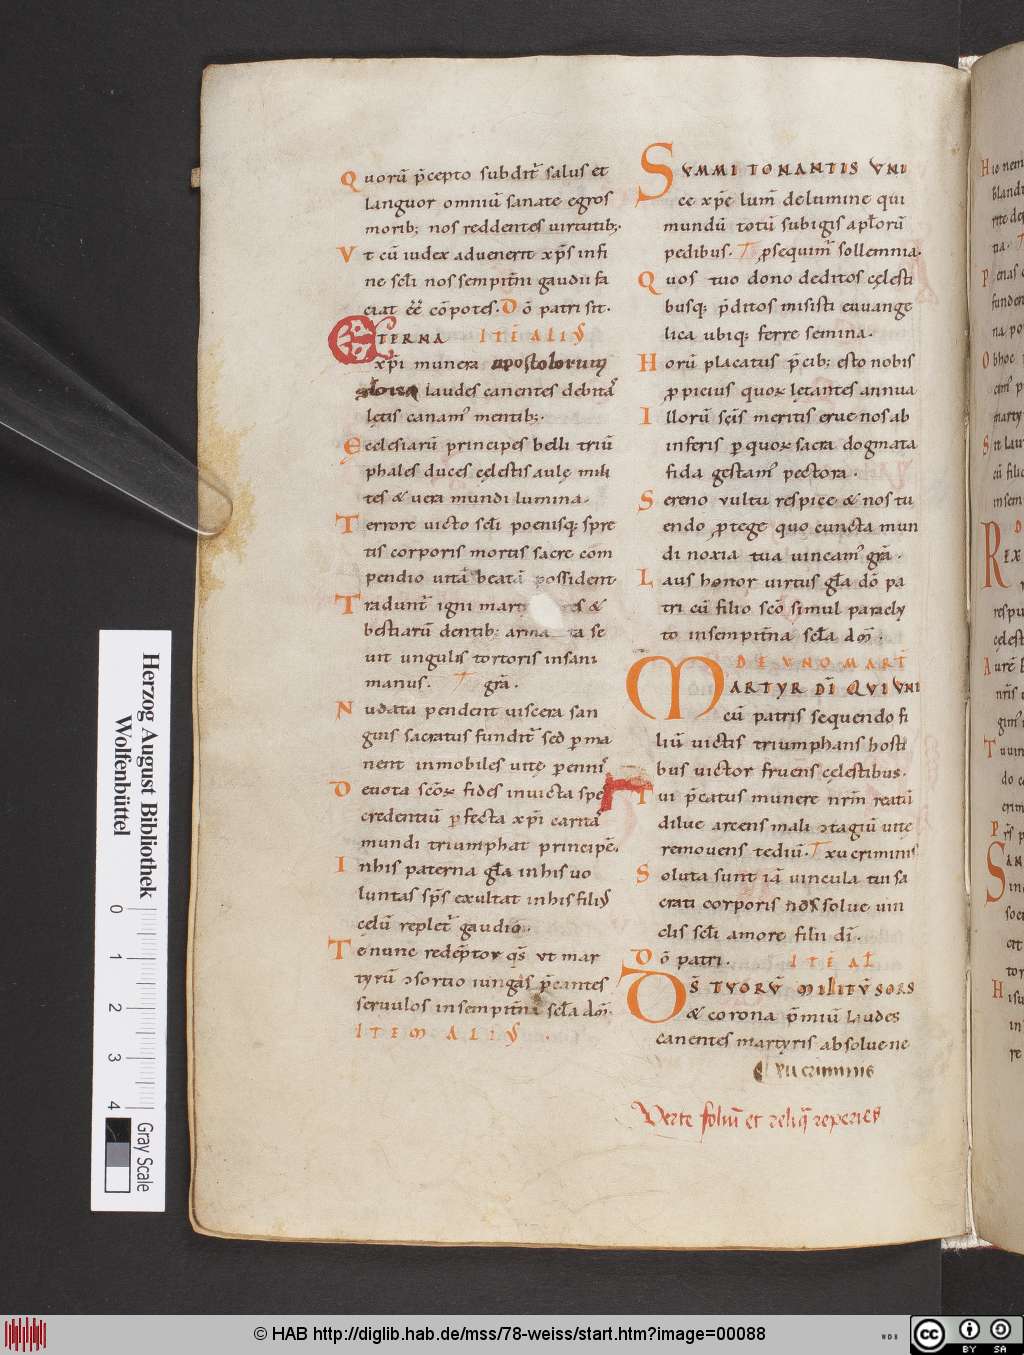 Quorū p̄cepto subdit᷑ salus et
languor omniū sanate egros
morib; nos reddentes uirtutib;.
Vt cū iudex aduenerit xp̄s infi
ne scl̄i nos sempit̄ni gaudii fa
ciat ēē cōpotes. Dō patri sit.
ETERNA ITĒ ALIꝰ
xp̄i munera apostolorum
laudes canentes debitas
letis canam᷒ mentib;.
Ecclesiarū principes belli triū
phales duces cęlestis aulę mili
tes & uera mundi lumina.
Terrore uicto scl̄i poenisq; spre
tis corporis mortis sacre com
pendio uitā beatā possident.
Tradunt᷑ igni &
bestiarū dentib; se
uit ungulis tortoris insani
manus. grā.
Nudata pendent uiscera san
guis sacratus fundit᷑ sed p̱ma
nent inmobiles uitę
Deuota scōꝝ fides inuicta spes
credentiū p̱fecta xp̄i caritas
mundi triumphat principē.
Inhis paterna gl̄a inhis uo
luntas sp̄s exultat inhis filiꝰ
cęlū replet᷑ gaudio.
Te nunc redēptor q̄s ut mar
tyrū ↄsortio iungas p̄cantes
seruulos insempit̄na scl̄a am̄.
ITEM ALIꝰ.
SVMMI TONANTIS VNI
ce xp̄e lum̄ delumine qui
mundū totū subigis apl̄orū
pedibus. p̱sequim᷒ sollemnia.
Quos tuo dono deditos cęlesti
busq; p̄ditos misisti euuange
lica ubiq; ferre semina.
Horū placatus p̄cib; esto nobis
ꝓpicius quoꝝ lętantes annua
Illorū scīs meritis erue nos ab
inferis p̱ quoꝝ sacra dogmata
fida gestam᷒ pectora.
Sereno vultu respice & nos tu
endo ꝓtege quo cuncta mun
di noxia tua uincam᷒ grā.
Laus honor uirtus gl̄a dō pa
tri cū filio scō simul paracly
to insempit̄na scl̄a am̄.
DE VNO MART̄
MARTYR DĪ QVI VNI
cū patris sequendo fi
liū uictis triumphans hosti
bus uictor fruens cęlestibus.
Tui p̄catus munere nr̄m reatū
dilue arcens mali ↄtagiū uite
remouens tediū. xu criminis
Soluta sunt iā uincula tui sa
crati corporis nos solue uin
clis scl̄i amore filii dī.
Dō patri. ITĒ AL̄
DS̄ TVORV̄ MILITV̄ SORS
& corona p̄miū laudes
canentes martyris absolue ne
xu criminis
Verte foliū et reliq̄ reperies
Herzog August Bibliothek
Wolfenbüttel
0 1 2 3 4
Gray Scale
© HAB http://diglib.hab.de/mss/78-weiss/start.htm?image=00088
WDB
cc BY SA